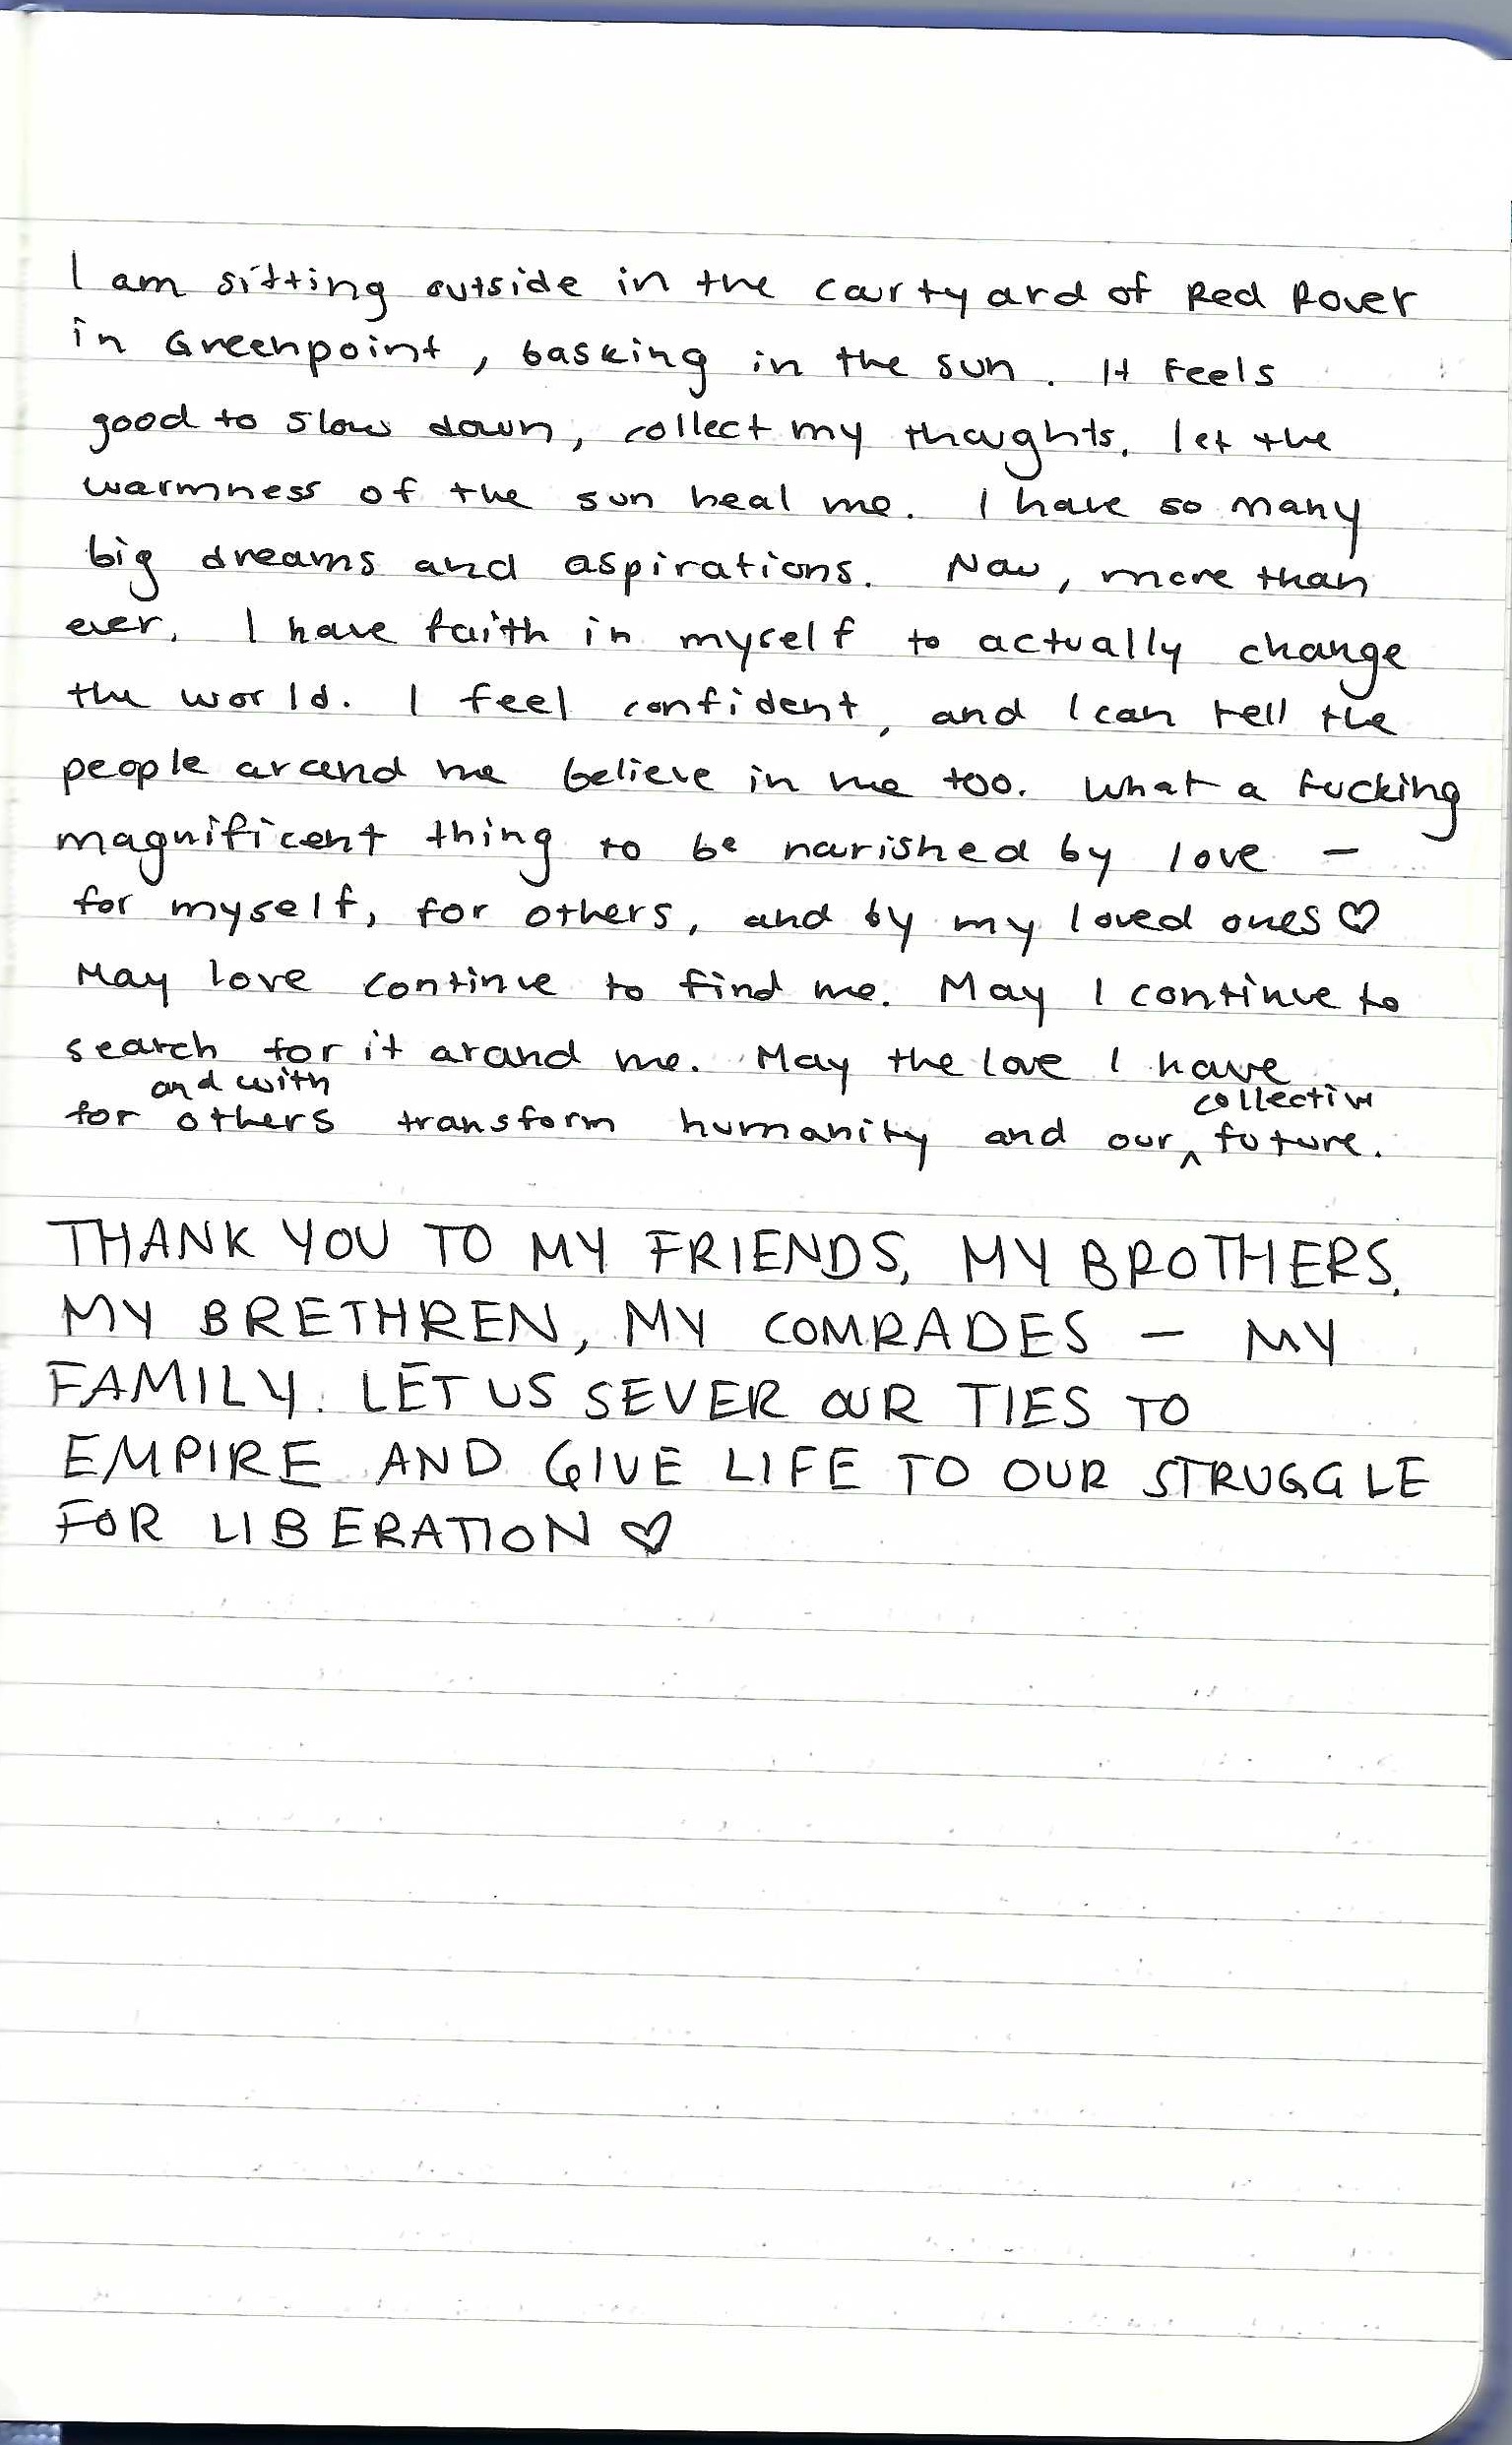 I am sitting outside in the courtyard of Red Rover
in Greenpoint, basking in the sun. It feels
good to slow down, collect my thoughts, let the
warmness of the sun heal me. I have so many
big dreams and aspirations. Now, more than
ever, I have faith in myself to actually change
the world. I feel confident, and I can tell the
people around me believe in me too. What a fucking
magnificent thing to be nourished by love –
for myself, for others, and by my loved ones ♡
May love continue to find me. May I continue to
search for it around me. May the love I have
and with
collective
for others transform humanity and our ^ future.
THANK YOU TO MY FRIENDS, MY BROTHERS,
MY BRETHREN, MY COMRADES – MY
FAMILY. LET US SEVER OUR TIES TO
EMPIRE AND GIVE LIFE TO OUR STRUGGLE
FOR LIBERATION ♡